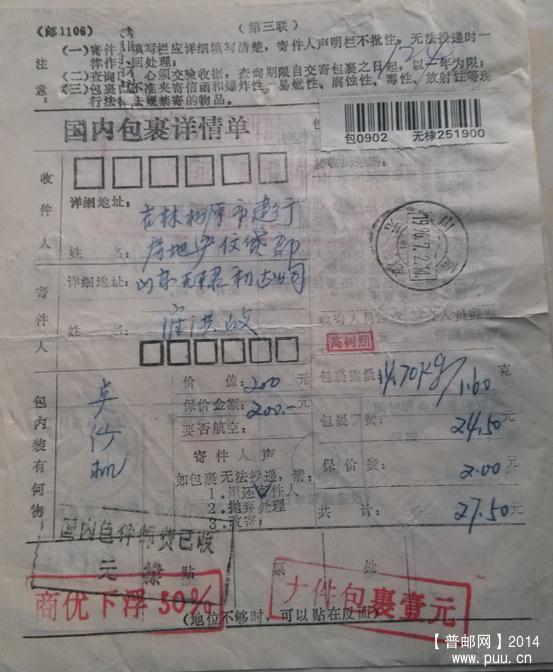 (邮1106)
(第三联)
注意：
(一)寄件人填写栏应详细填写清楚，寄件人声明栏不批注，无法投递时一律作退回处理；
(二)查询时，必须交验收据，查询期限自交寄包裹之日起，以一年为限；
(三)包裹内不准夹寄信函和爆炸性、易燃性、腐蚀性、毒性、放射性等现行法令规禁寄的物品。
包0902 无棣251900
国内包裹详情单
收件人
详细地址：
吉林松原市建行
房地产信贷部
姓名：
寄件人
详细地址：
山东无棣利达公司
姓名：
山东
无棣
1996.7.2
高树朋
包内装有何物
价值：200元
保价金额：200.-元
要否航空：
寄件人声
如包裹无法投递，请：
1.退还寄件人
2.抛弃处理
3.改寄：
包裹重量 克
包裹资费：24.50元
保价费：2.00元
共计：27.50元
国内包裹邮费已收
元
票贴
票处
商优下浮50%
大件包裹壹元
(地位不够时，可以贴在反面)
【普邮网】2014
www.puu.cn